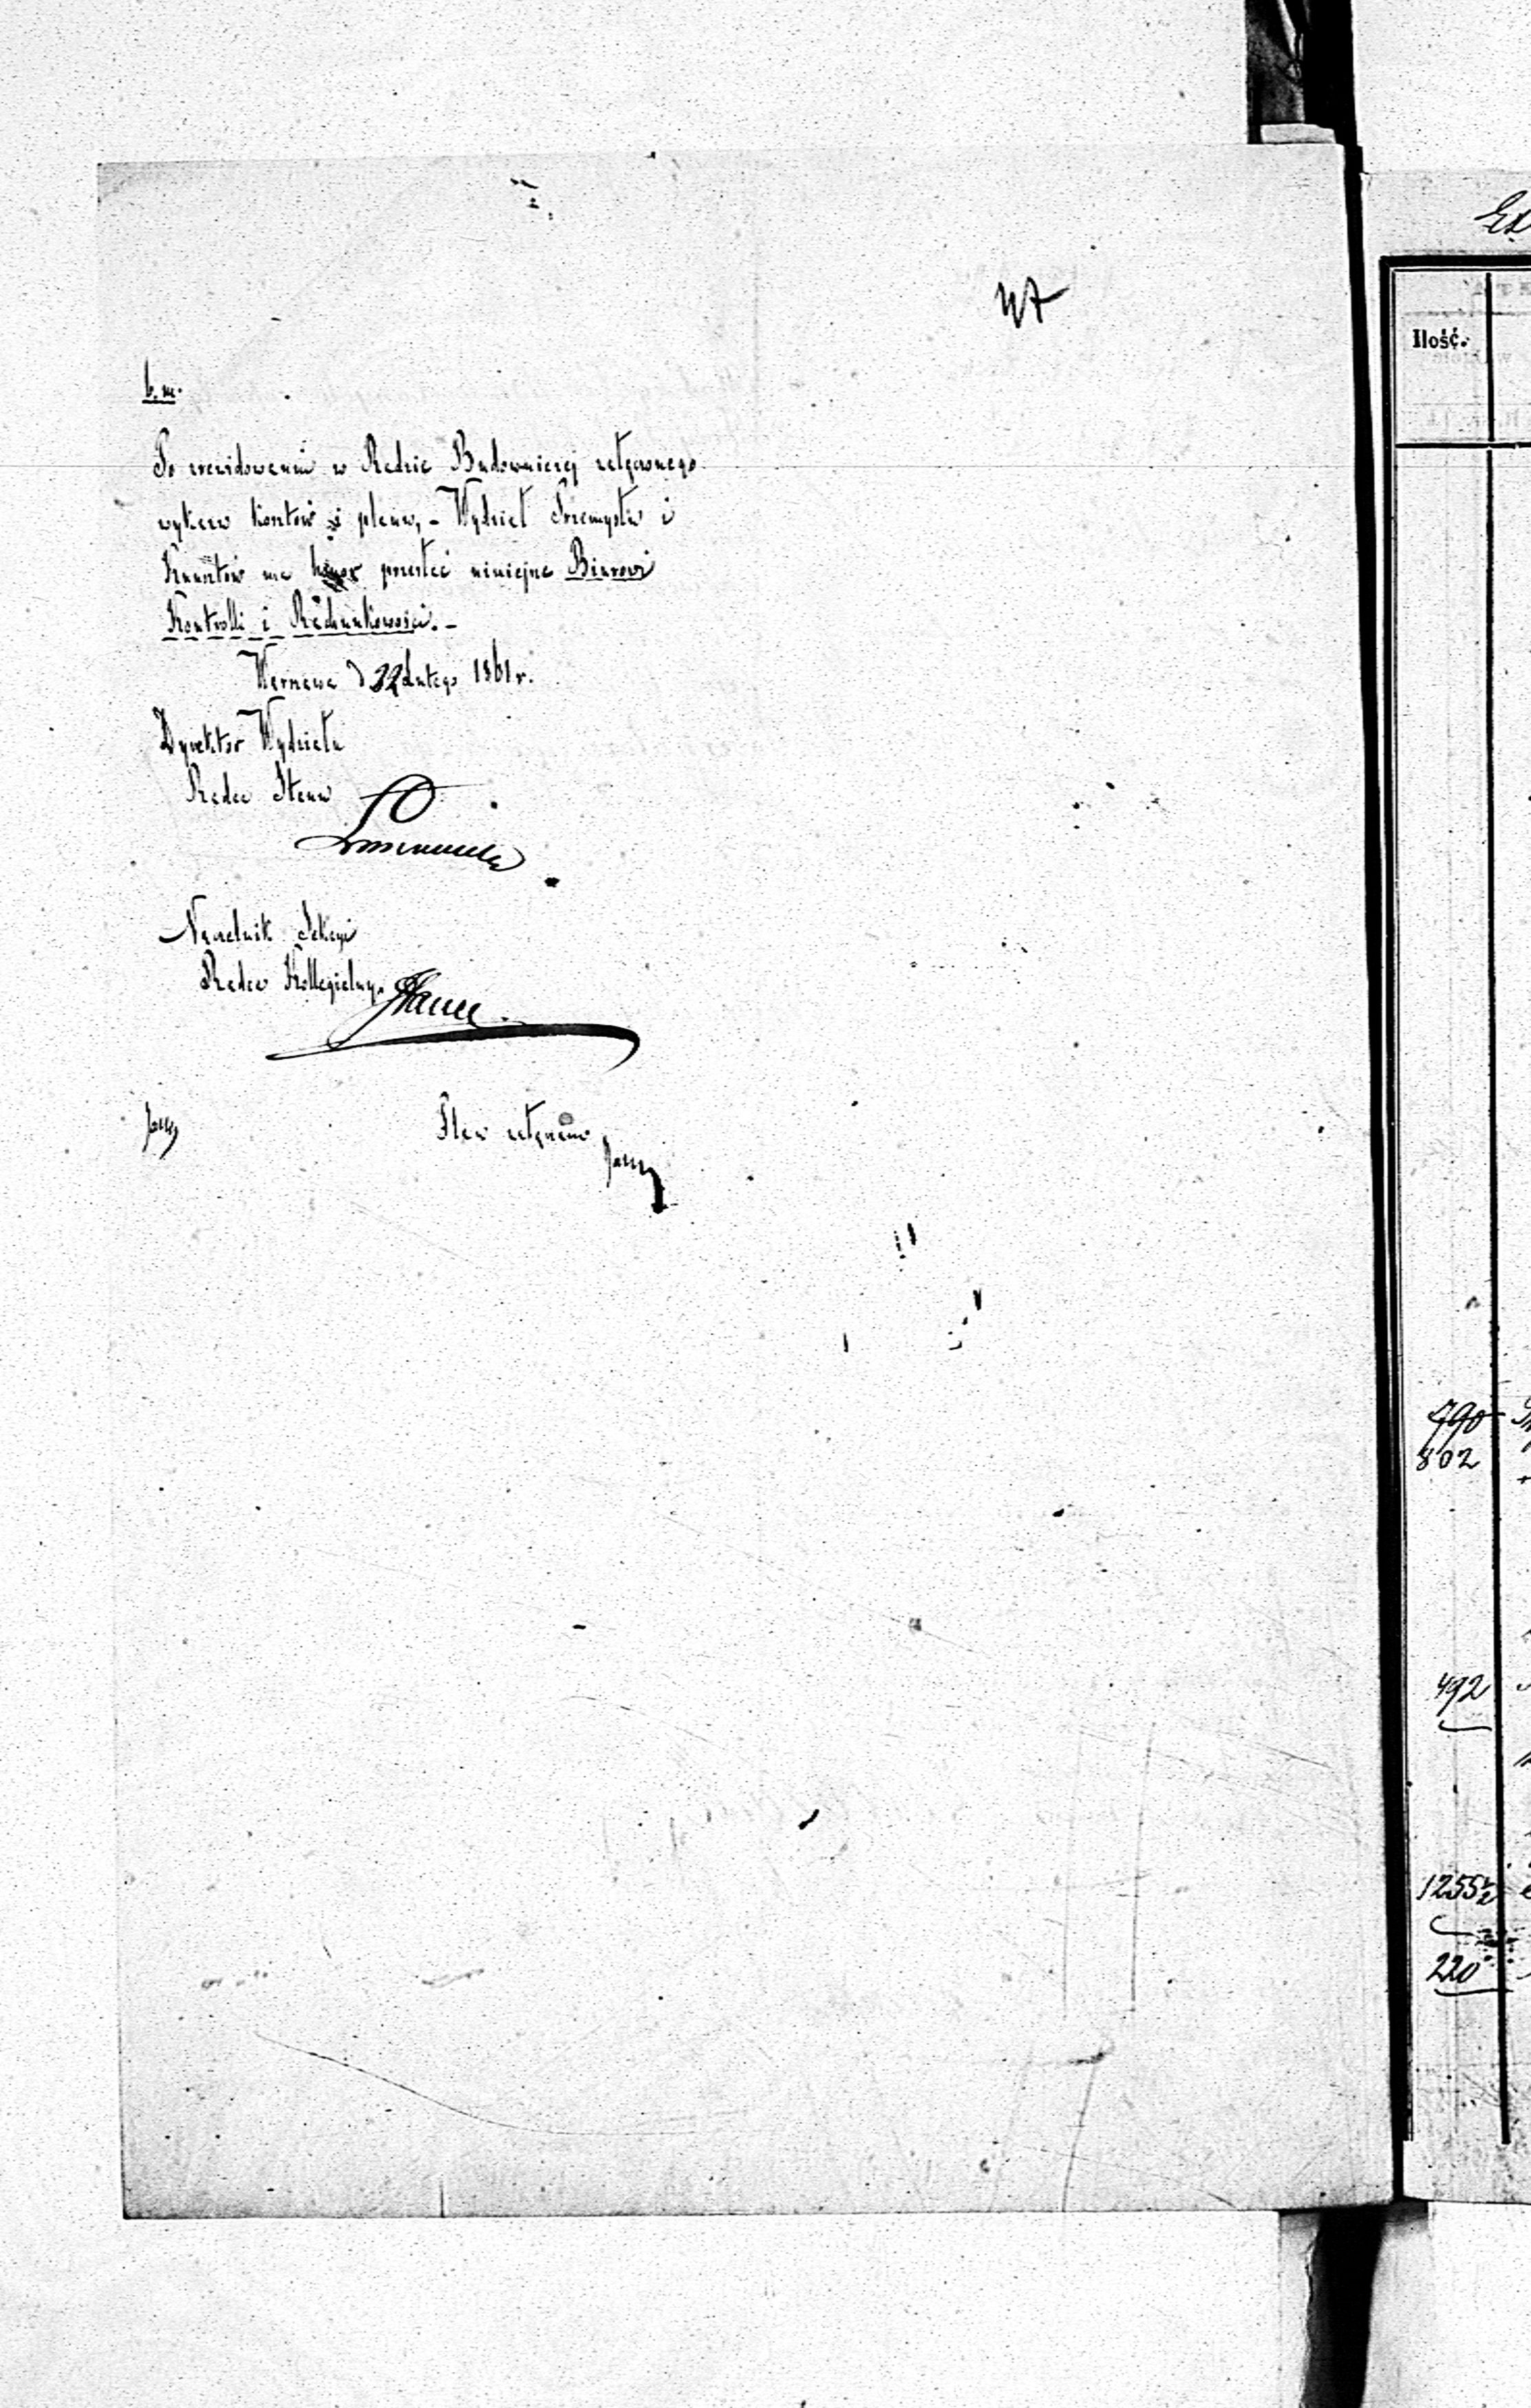 47
b.m.
Po zrewidowaniu w Radzie Budowniczej załączonego
wykazu kosztów i planu, - Wydział Przemysłu i
Kunsztów ma honor przesłać niniejsze Biurowi
Kontrolli i Rachunkowości. -
Warszawa d 22 Lutego 1861 r.
Dyrektor Wydziału
Radca Stanu
Naczelnik Sekcyi
Radca Kollegialny
Plan załączono
Ilość.
790
802
492
1255½
220